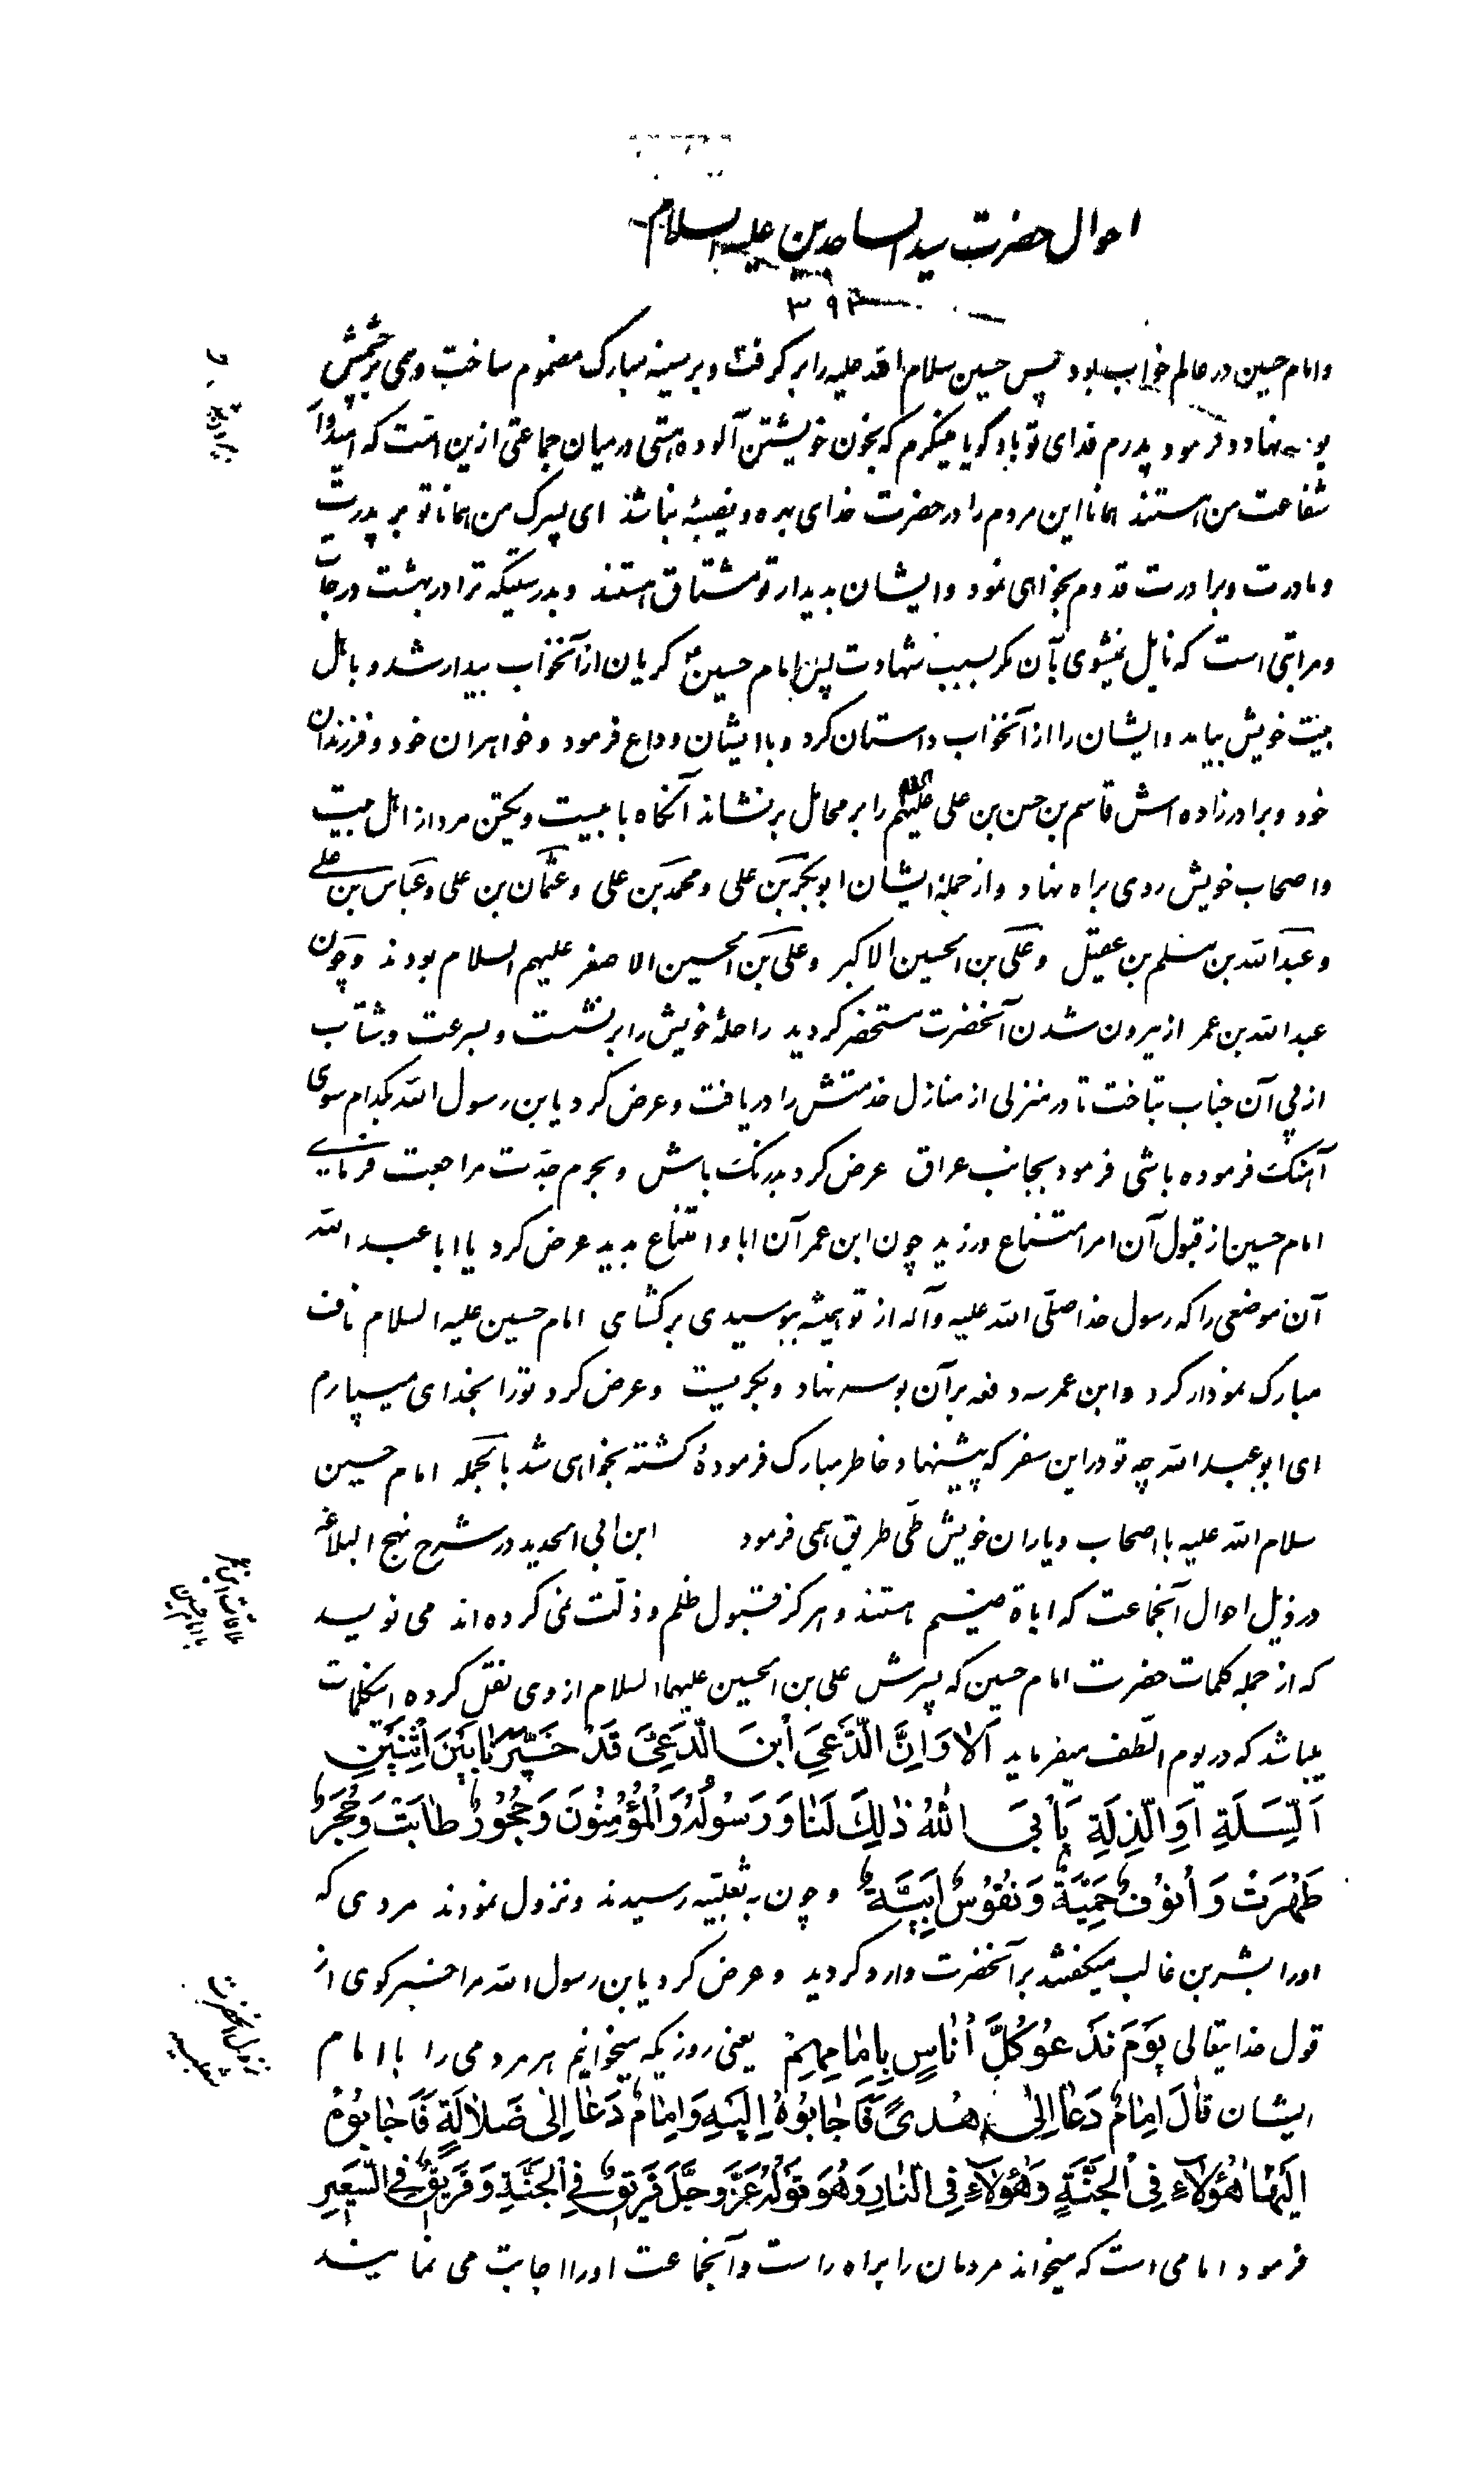 احوال حضرت سید الساجدین علیه السلام
۳۹۳
و امام حسین در عالم خواب بود پس حسین سلام الله علیه را بر گرفت و بر سینه مبارک مضموم ساخت و همی بر چشمش
بوسه نهاد و فرمود پدرم فدای تو باد گویا مینگرم که بخون خویشتن آلوده هستی در میان جماعتی ازین امت که امیدوار
شفاعت من هستند همانا این مردم را در حضرت خدای بهره و نصیبه نباشد ای پسرک من همانا تو بر پدرت
و مادرت و برادرت قدوم بخواهی نمود و ایشان بدیدار تو مشتاق هستند و بدرستیکه ترا در بهشت درجات
و مراتبی است که نایل نمیشوی بآن مگر بسبب شهادت پس امام حسین ع گریان از آنخواب بیدار شد و باهل
بیت خویش بیامد و ایشان را از آنخواب داستان کرد و با ایشان وداع فرمود و خواهران خود و فرزندان
خود و برادرزاده اش قاسم بن حسن بن علی علیهم را بر محامل بر نشاند آنگاه با بیست و یکتن مرد از اهل بیت
و اصحاب خویش روی براه نهاد و از جمله ایشان ابو بکر بن علی و محمد بن علی و عثمان بن علی و عباس بن علی
و عبد الله بن مسلم بن عقیل و علی بن الحسین الاکبر و علی بن الحسین الاصغر علیهم السلام بودند و چون
عبد الله بن عمر از بیرون شدن آنحضرت مستحضر گردید راحلهٔ خویش را بر نشست و بسرعت و شتاب
از پی آن جناب بتاخت تا در منزلی از منازل خدمتش را دریافت و عرض کرد یا بن رسول الله بکدام سوی
آهنگ فرموده باشی فرمود بجانب عراق عرض کرد بدرنگ باش و بحرم جدت مراجعت فرمای
امام حسین از قبول آن امر امتناع ورزید چون ابن عمر آن ابا و امتناع بدید عرض کرد یا ابا عبد الله
آن موضعی را که رسول خدا صلی الله علیه و آله از تو همیشه ببوسیدی برگشای امام حسین علیه السلام ناف
مبارک نمودار کرد و ابن عمر سه دفعه بر آن بوسه نهاد و بگریست و عرض کرد تو را بخدای میسپارم
ای ابو عبد الله چه تو در این سفر که پیشنهاد خاطر مبارک فرمودهٔ کشته بخواهی شد بالجمله امام حسین
سلام الله علیه با اصحاب و یاران خویش طی طریق همی فرمود ابن ابی الحدید در شرح نهج البلاغه
در ذیل احوال آنجماعت که اباة ضیم هستند و هرگز قبول ظلم و ذلت نمی کرده اند می نویسد
که از جمله کلمات حضرت امام حسین که پسرش علی بن الحسین علیهما السلام از وی نقل کرده اینکلمات
میباشد که در یوم الطف میفرماید اَلا وَاِنَّ الدَّعِیَ ابْنَ الدَّعِیَّ قَدْ خَیَّرَنا بَیْنَ اثْنَیْنِ
اَلسِّلَةِ اَوِ الذِّلَةِ یَاْبیَ اللهُ ذٰلِکَ لَنا وَرَسُولُهُ وَالْمُؤْمِنُونَ وَحُجُورٌ طابَتْ وَحُجَرٌ
طَهُرَتْ وَاُنوُفٌ حَمِیَّةٌ وَنُفُوسٌ اَبِیَّةٌ و چون به ثعلبیه رسیدند و نزول نمودند مردی که
او را بشر بن غالب میگفتند بر آنحضرت وارد گردید و عرض کرد یا بن رسول الله مرا خبر گوی از
قول خدا یتعالی یَوْمَ نَدْعوُ کُلَّ اُناسٍ بِاِمامِهِمْ یعنی روزیکه میخوانیم هر مردمی را با امام
ایشان قالَ اِمامٌ دَعا اِلیٰ هُدیً فَاَجابوُهُ اِلَیْهِ وَاِمامٌ دَعا اِلیٰ ضَلالَةٍ فَاَجابوُهُ
اِلَیْها هٰؤُلاءِ فِی الْجَنَّةِ وَهٰؤُلاءِ فِی النّارِ وَهُوَ قَوْلُهُ عَزَّ وَجَلَّ فَریقٌ فِی الْجَنَّةِ وَفَریقٌ فِی السَّعیرِ
فرمود امامی است که میخواند مردمان را براه راست و آنجماعت او را اجابت می نمایند
ملاقات ابن عمر
با امام حسین
نزول آنحضرت
بثعلبیه